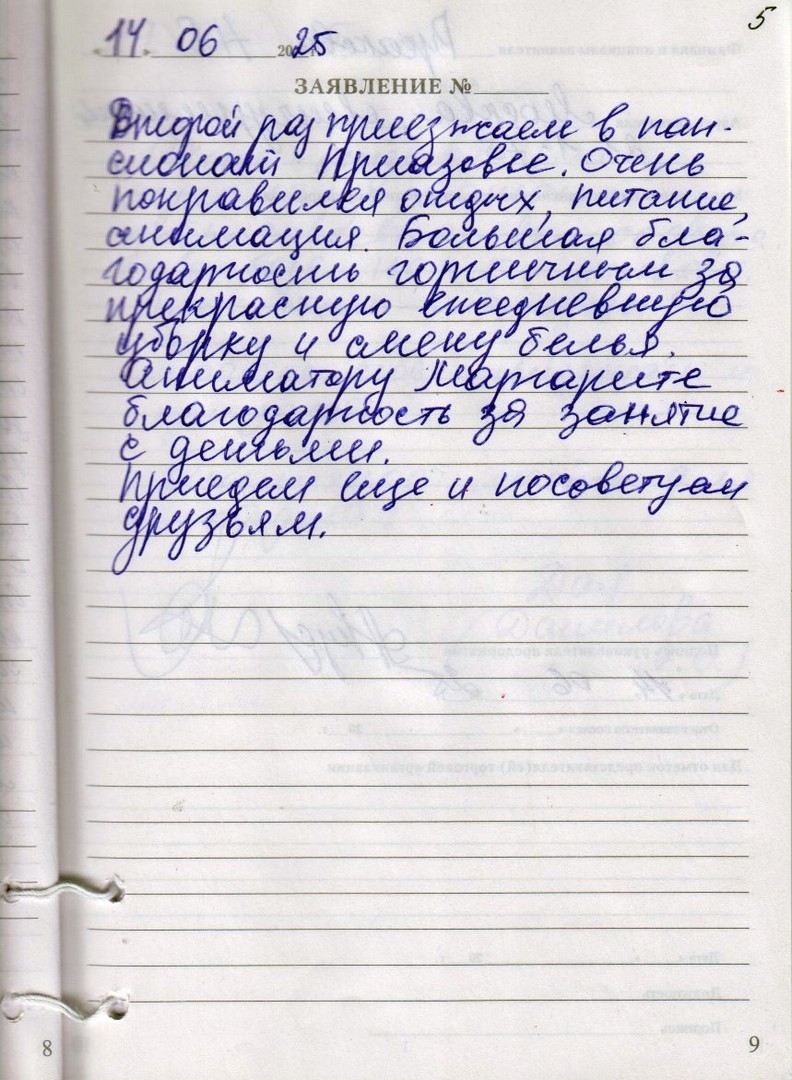 5
«14» 06 2025
ЗАЯВЛЕНИЕ №
Второй раз приезжаем в пан-
сионат Приазовье. Очень
понравился отдых, питание,
анимация. Большая бла-
годарность горничным за
прекрасную ежедневную
уборку и смену белья.
Аниматору Маргарите
благодарность за занятие
с детьми.
Приедем еще и посоветуем
друзьям.
8
9